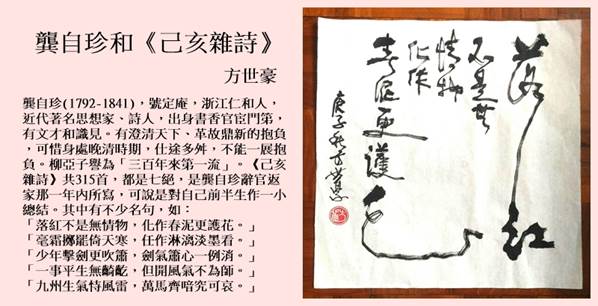 龔自珍和《己亥雜詩》
方世豪
龔自珍(1792-1841)，號定庵，浙江仁和人，
近代著名思想家、詩人，出身書香官宦門第，
有文才和識見。有澄清天下、革故鼎新的抱負
，可惜身處晚清時期，仕途多舛，不能一展抱
負。柳亞子譽為「三百年來第一流」。《己亥
雜詩》共315首，都是七絕，是龔自珍辭官返
家那一年內所寫，可說是對自己前半生作一小
總結。其中有不少名句，如：
「落紅不是無情物，化作春泥更護花。」
「毫霜擲罷倚天寒，任作淋漓淡墨看。」
「少年擊劍更吹簫，劍氣簫心一例消。」
「一事平生無齮齕，但開風氣不為師。」
「九州生氣恃風雷，萬馬齊喑究可哀。」
落紅
不是無
情物
化作
春泥更護
花
庚子秋方世豪